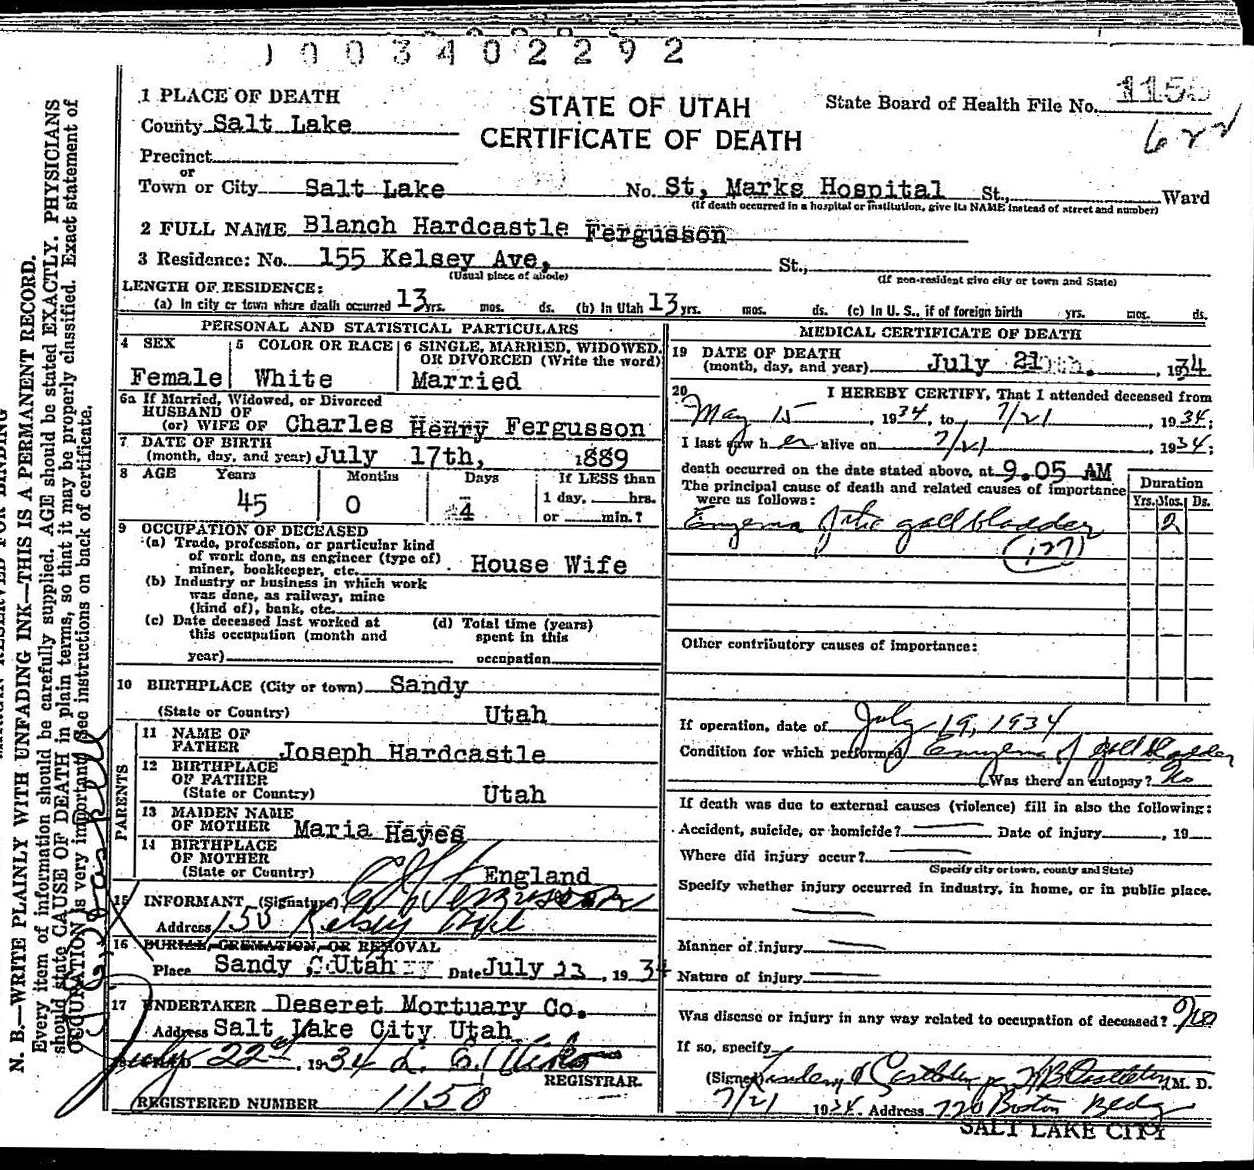 1003402292
1 PLACE OF DEATH
STATE OF UTAH
CERTIFICATE OF DEATH
State Board of Health File No. 1155
622
County Salt Lake
Precinct
or
Town or City Salt Lake No. St, Marks Hospital St., Ward
(If death occurred in a hospital or institution, give its NAME instead of street and number)
2 FULL NAME Blanch Hardcastle Fergusson
3 Residence: No. 155 Kelsey Ave, St.,
(Usual place of abode) (If non-resident give city or town and State)
LENGTH OF RESIDENCE:
(a) In city or town where death occurred 13 yrs. mos. ds. (b) In Utah 13 yrs. mos. ds. (c) In U. S., if of foreign birth yrs. mos. ds.
PERSONAL AND STATISTICAL PARTICULARS
4 SEX
Female
5 COLOR OR RACE
White
6 SINGLE, MARRIED, WIDOWED, OR DIVORCED (Write the word)
Married
6a If Married, Widowed, or Divorced
HUSBAND OF
(or) WIFE OF Charles Henry Fergusson
7 DATE OF BIRTH
(month, day, and year) July 17th, 1889
8 AGE Years Months Days If LESS than
45 0 4 1 day, hrs.
or min.?
9 OCCUPATION OF DECEASED
(a) Trade, profession, or particular kind
of work done, as engineer (type of)
miner, bookkeeper, etc. House Wife
(b) Industry or business in which work
was done, as railway, mine
(kind of), bank, etc.
(c) Date deceased last worked at
this occupation (month and
year)
(d) Total time (years)
spent in this
occupation
10 BIRTHPLACE (City or town) Sandy
(State or Country) Utah
PARENTS
11 NAME OF
FATHER Joseph Hardcastle
12 BIRTHPLACE
OF FATHER
(State or Country) Utah
13 MAIDEN NAME
OF MOTHER Maria Hayes
14 BIRTHPLACE
OF MOTHER
(State or Country) England
15 INFORMANT (Signature) C H Fergusson
Address 150 Kelsey Ave
16 BURIAL, CREMATION, OR REMOVAL
Place Sandy, Utah Date July 23, 1934
17 UNDERTAKER Deseret Mortuary Co.
Address Salt Lake City Utah
July 22nd, 1934
REGISTRAR.
REGISTERED NUMBER 1150
MEDICAL CERTIFICATE OF DEATH
19 DATE OF DEATH
(month, day, and year) July 21th. , 1934
20 I HEREBY CERTIFY, That I attended deceased from
May 15, 1934, to 7/21 1934;
I last saw h er alive on 7/21, 1934;
death occurred on the date stated above, at 9.05 AM
The principal cause of death and related causes of importance
were as follows:
Duration
Yrs. Mos. Ds.
Empyema of the gallbladder 2
(127)
Other contributory causes of importance:
If operation, date of July 19, 1934
Condition for which performed Empyema of gallbladder
Was there an autopsy? No
If death was due to external causes (violence) fill in also the following:
Accident, suicide, or homicide? Date of injury , 19
Where did injury occur?
(Specify city or town, county and State)
Specify whether injury occurred in industry, in home, or in public place.
Manner of injury
Nature of injury
Was disease or injury in any way related to occupation of deceased? No
If so, specify
(Signed) Castleton M. D.
7/21 1934 Address 720 Boston Bldg
SALT LAKE CITY
N. B.—WRITE PLAINLY WITH UNFADING INK—THIS IS A PERMANENT RECORD.
Every item of information should be carefully supplied. AGE should be stated EXACTLY. PHYSICIANS
should state CAUSE OF DEATH in plain terms, so that it may be properly classified. Exact statement of
OCCUPATION is very important. See instructions on back of certificate.